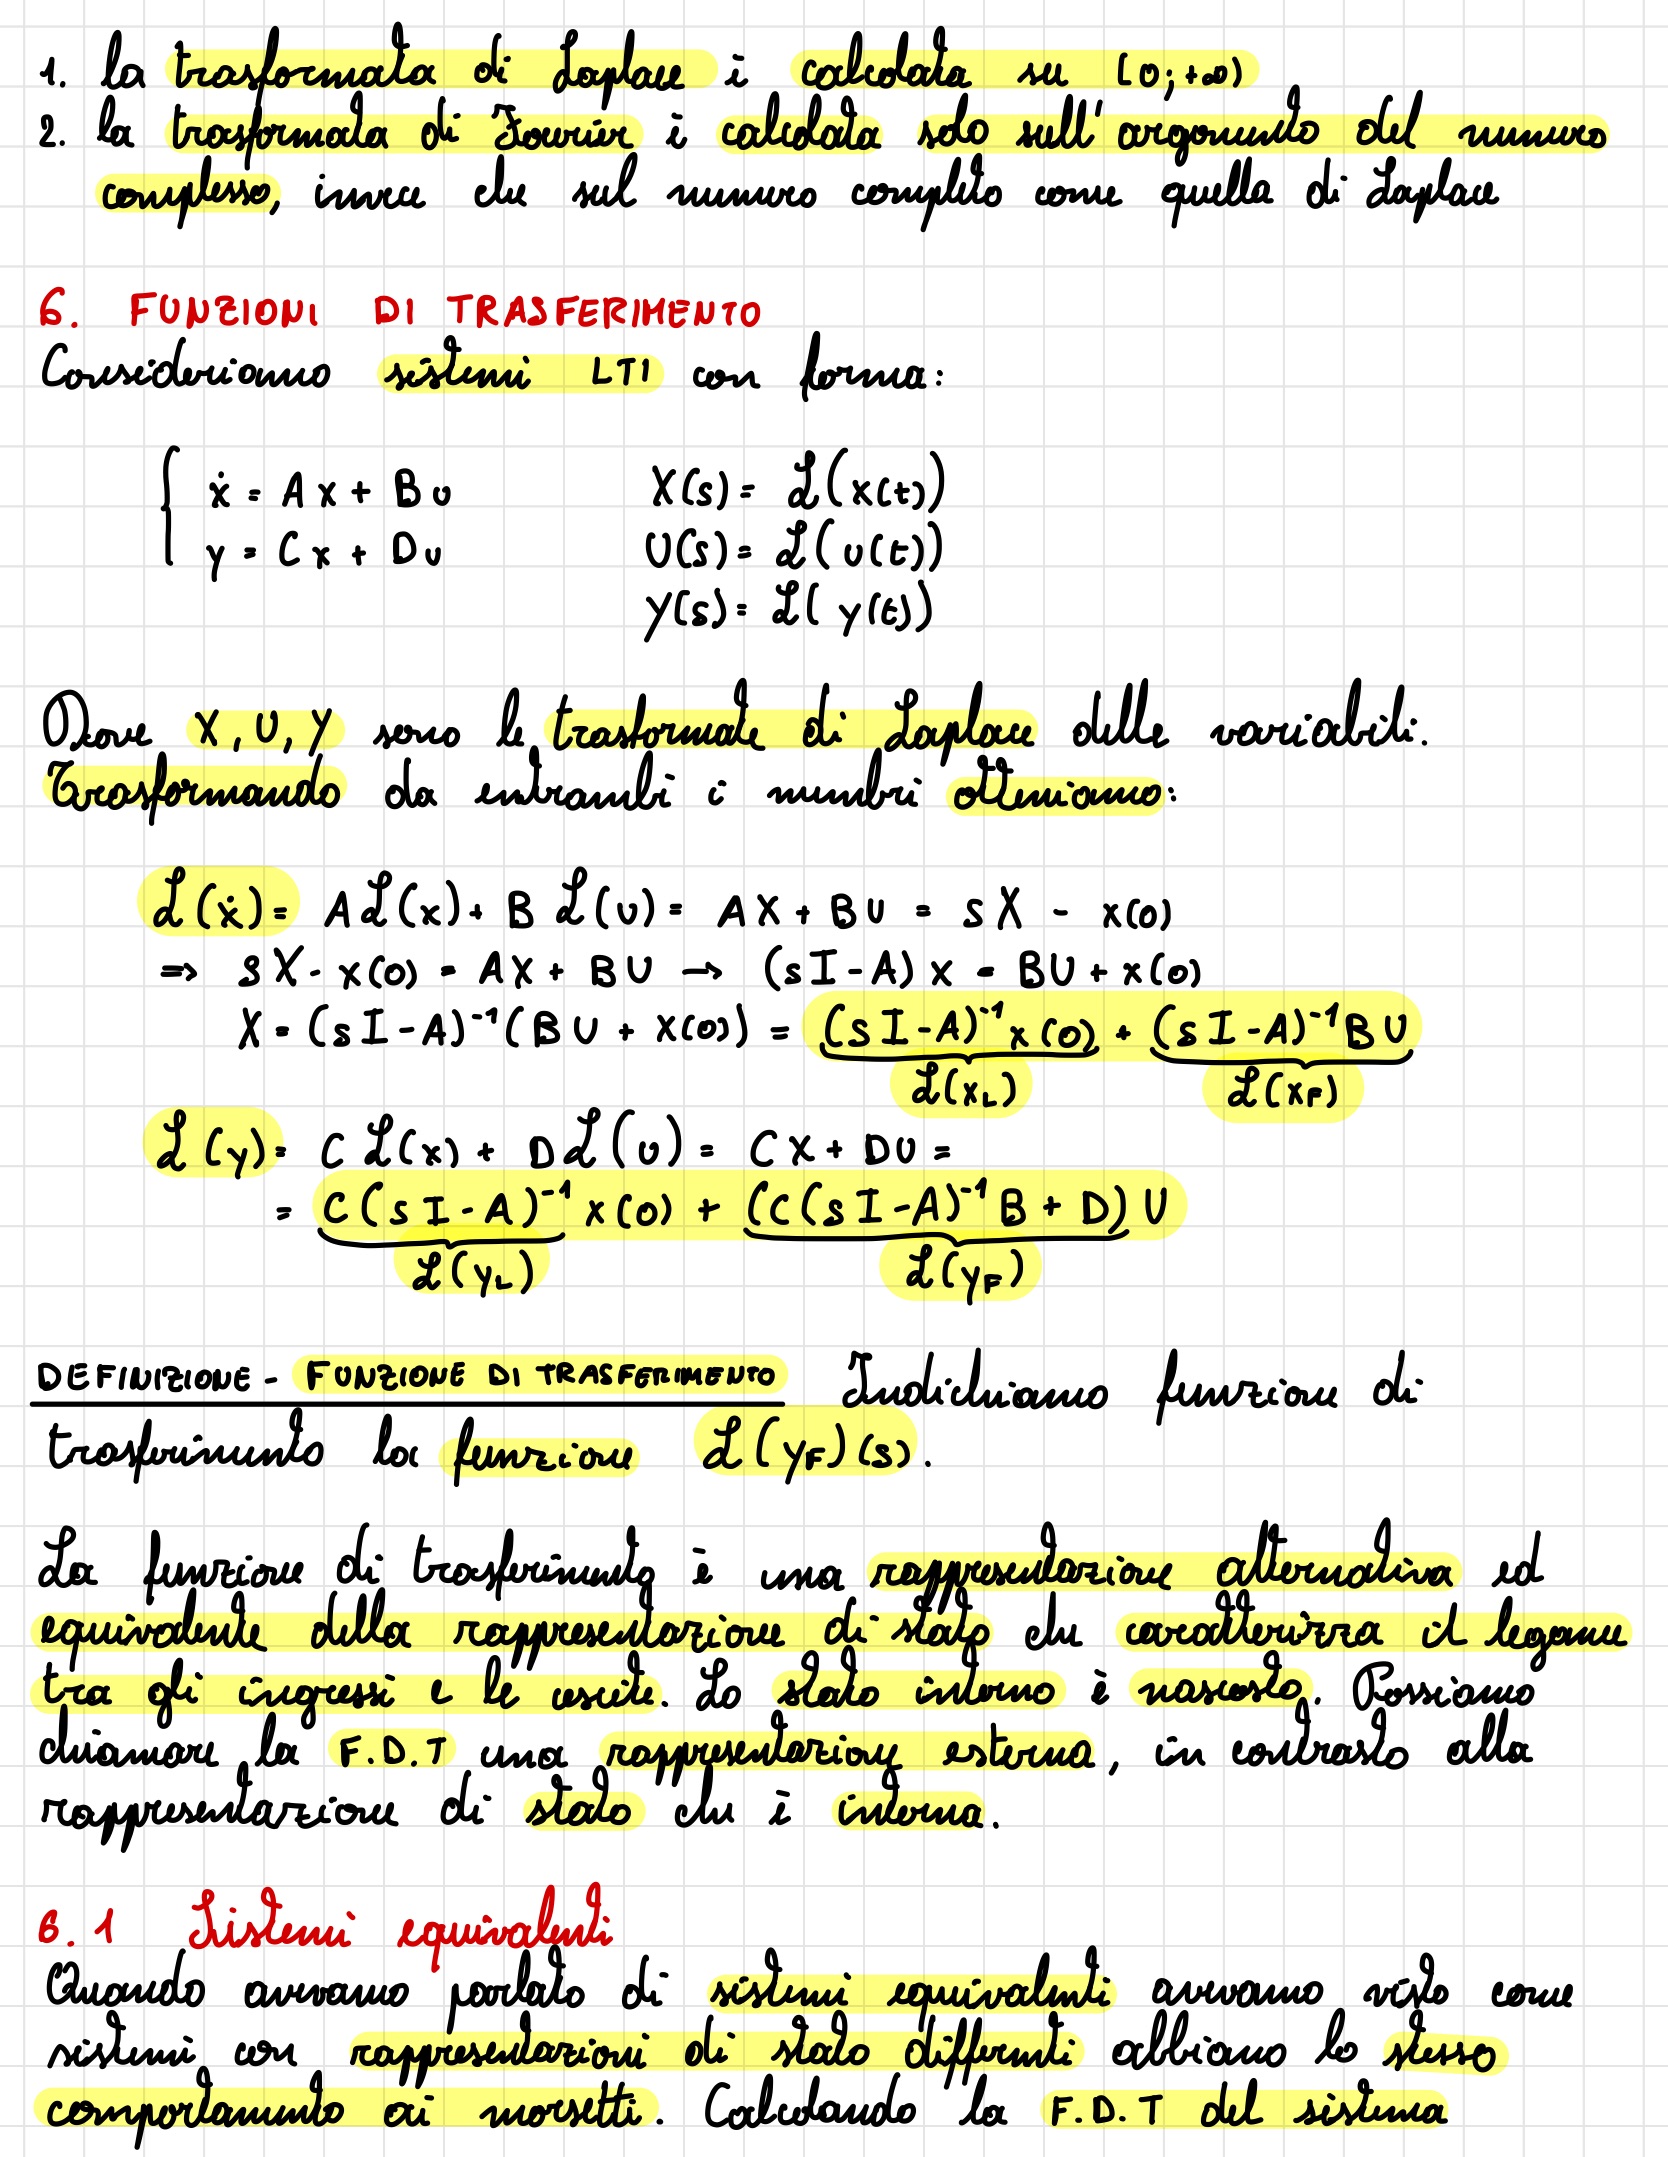 1. la trasformata di Laplace è calcolata su [0;+∞)
2. la trasformata di Fourier è calcolata solo sull'argomento del numero
complesso, invece che sul numero completo come quella di Laplace
6. FUNZIONI DI TRASFERIMENTO
Consideriamo sistemi LTI con forma:
{ ẋ = Ax + Bu X(s) = ℒ(x(t))
y = Cx + Du U(s) = ℒ(u(t))
Y(s) = ℒ(y(t))
Dove X, U, Y sono le trasformate di Laplace delle variabili.
Trasformando da entrambi i membri otteniamo:
ℒ(ẋ) = Aℒ(x) + Bℒ(u) = AX + BU = sX - x(0)
⇒ sX - x(0) = AX + BU → (sI-A)x = BU + x(0)
X = (sI-A)⁻¹(BU + x(0)) = (sI-A)⁻¹x(0) + (sI-A)⁻¹BU
ℒ(x_L) ℒ(x_F)
ℒ(y) = Cℒ(x) + Dℒ(u) = CX + DU =
= C(sI-A)⁻¹x(0) + (C(sI-A)⁻¹B + D)U
ℒ(y_L) ℒ(y_F)
DEFINIZIONE - FUNZIONE DI TRASFERIMENTO Indichiamo funzione di
trasferimento la funzione ℒ(y_F)(s).
La funzione di trasferimento è una rappresentazione alternativa ed
equivalente della rappresentazione di stato che caratterizza il legame
tra gli ingressi e le uscite. Lo stato interno è nascosto. Possiamo
chiamare la F.D.T una rappresentazione esterna, in contrasto alla
rappresentazione di stato che è interna.
6.1 Sistemi equivalenti
Quando avevamo parlato di sistemi equivalenti avevamo visto come
sistemi con rappresentazioni di stato differenti abbiano lo stesso
comportamento ai morsetti. Calcolando la F.D.T del sistema